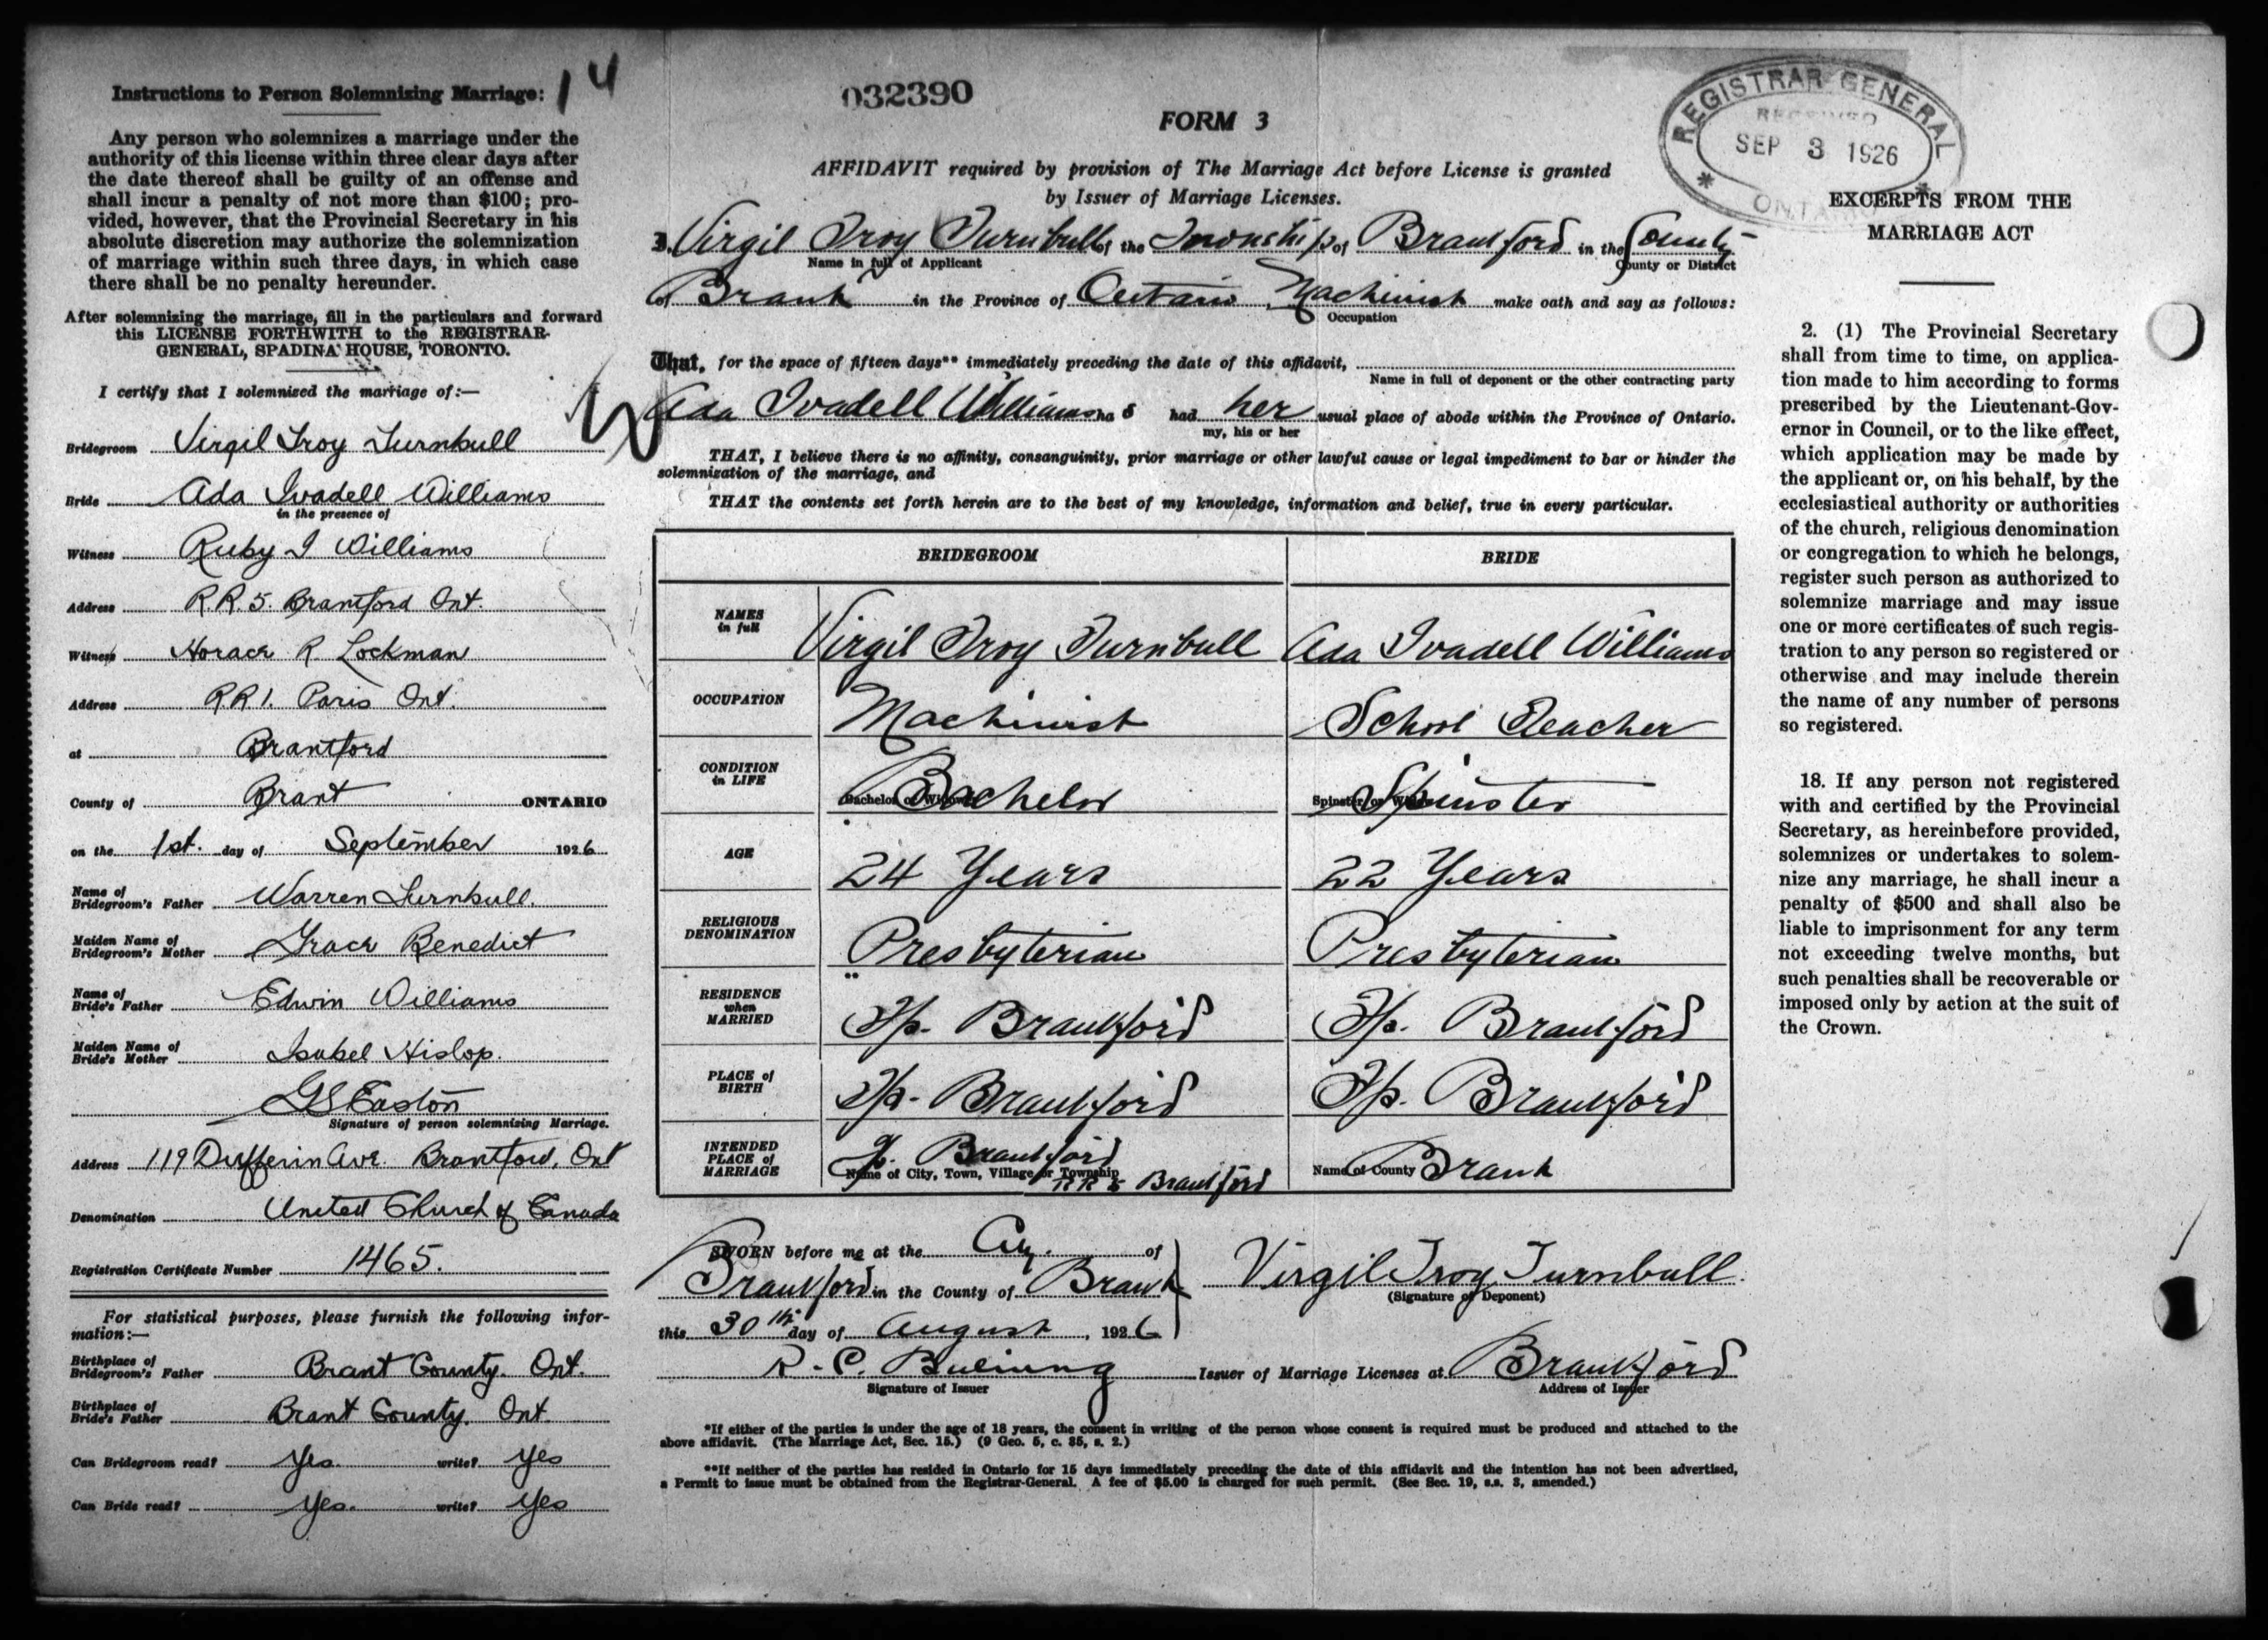 Instructions to Person Solemnizing Marriage: 14
Any person who solemnizes a marriage under the
authority of this license within three clear days after
the date thereof shall be guilty of an offense and
shall incur a penalty of not more than $100; pro-
vided, however, that the Provincial Secretary in his
absolute discretion may authorize the solemnization
of marriage within such three days, in which case
there shall be no penalty hereunder.
After solemnizing the marriage, fill in the particulars and forward
this LICENSE FORTHWITH to the REGISTRAR-
GENERAL, SPADINA HOUSE, TORONTO.
I certify that I solemnized the marriage of:—
Bridegroom Virgil Troy Turnbull
Bride Ada Ivadell Williams
in the presence of
Witness Ruby I Williams
Address R.R. 5. Brantford Ont.
Witness Horace R. Lockman
Address R.R 1. Paris Ont.
at Brantford
County of Brant ONTARIO
on the 1st. day of September 1926
Name of
Bridegroom's Father Warren Turnbull.
Maiden Name of
Bridegroom's Mother Grace Benedict
Name of
Bride's Father Edwin Williams
Maiden Name of
Bride's Mother Isabel Hislop.
GS Easton
Signature of person solemnizing Marriage.
Address 119 Dufferin Ave. Brantford, Ont
Denomination United Church of Canada
Registration Certificate Number 1465.
For statistical purposes, please furnish the following infor-
mation:—
Birthplace of
Bridegroom's Father Brant County. Ont.
Birthplace of
Bride's Father Brant County. Ont.
Can Bridegroom read? Yes. write? Yes
Can Bride read? Yes. write? Yes
032390
FORM 3
AFFIDAVIT required by provision of The Marriage Act before License is granted
by Issuer of Marriage Licenses.
I, Virgil Troy Turnbull of the Township of Brantford in the County
Name in full of Applicant County or District
of Brant in the Province of Ontario Machinist make oath and say as follows:
Occupation
That, for the space of fifteen days** immediately preceding the date of this affidavit,
Name in full of deponent or the other contracting party
Ada Ivadell Williams has had her usual place of abode within the Province of Ontario.
my, his or her
THAT, I believe there is no affinity, consanguinity, prior marriage or other lawful cause or legal impediment to bar or hinder the
solemnization of the marriage, and
THAT the contents set forth herein are to the best of my knowledge, information and belief, true in every particular.
BRIDEGROOM BRIDE
NAMES
in full Virgil Troy Turnbull Ada Ivadell Williams
OCCUPATION Machinist School Teacher
CONDITION
in LIFE Bachelor Spinster
Bachelor or Widower Spinster or Widow
AGE 24 Years 22 Years
RELIGIOUS
DENOMINATION Presbyterian Presbyterian
RESIDENCE
when
MARRIED Tp. Brantford Tp. Brantford
PLACE of
BIRTH Tp. Brantford Tp. Brantford
INTENDED
PLACE of
MARRIAGE Tp. Brantford Brant
Name of City, Town, Village or Township Name of County
RR 5 Brantford
SWORN before me at the City of
Brantford in the County of Brant
this 30th day of August, 1926
Virgil Troy Turnbull.
(Signature of Deponent)
Issuer of Marriage Licenses at Brantford
Signature of Issuer Address of Issuer
*If either of the parties is under the age of 18 years, the consent in writing of the person whose consent is required must be produced and attached to the
above affidavit. (The Marriage Act, Sec. 15.) (9 Geo. 5, c. 35, s. 2.)
**If neither of the parties has resided in Ontario for 15 days immediately preceding the date of this affidavit and the intention has not been advertised,
a Permit to issue must be obtained from the Registrar-General. A fee of $5.00 is charged for such permit. (See Sec. 19, s.s. 3, amended.)
REGISTRAR GENERAL
RECEIVED
SEP 3 1926
ONTARIO
EXCERPTS FROM THE
MARRIAGE ACT
2. (1) The Provincial Secretary
shall from time to time, on applica-
tion made to him according to forms
prescribed by the Lieutenant-Gov-
ernor in Council, or to the like effect,
which application may be made by
the applicant or, on his behalf, by the
ecclesiastical authority or authorities
of the church, religious denomination
or congregation to which he belongs,
register such person as authorized to
solemnize marriage and may issue
one or more certificates of such regis-
tration to any person so registered or
otherwise and may include therein
the name of any number of persons
so registered.
18. If any person not registered
with and certified by the Provincial
Secretary, as hereinbefore provided,
solemnizes or undertakes to solem-
nize any marriage, he shall incur a
penalty of $500 and shall also be
liable to imprisonment for any term
not exceeding twelve months, but
such penalties shall be recoverable or
imposed only by action at the suit of
the Crown.